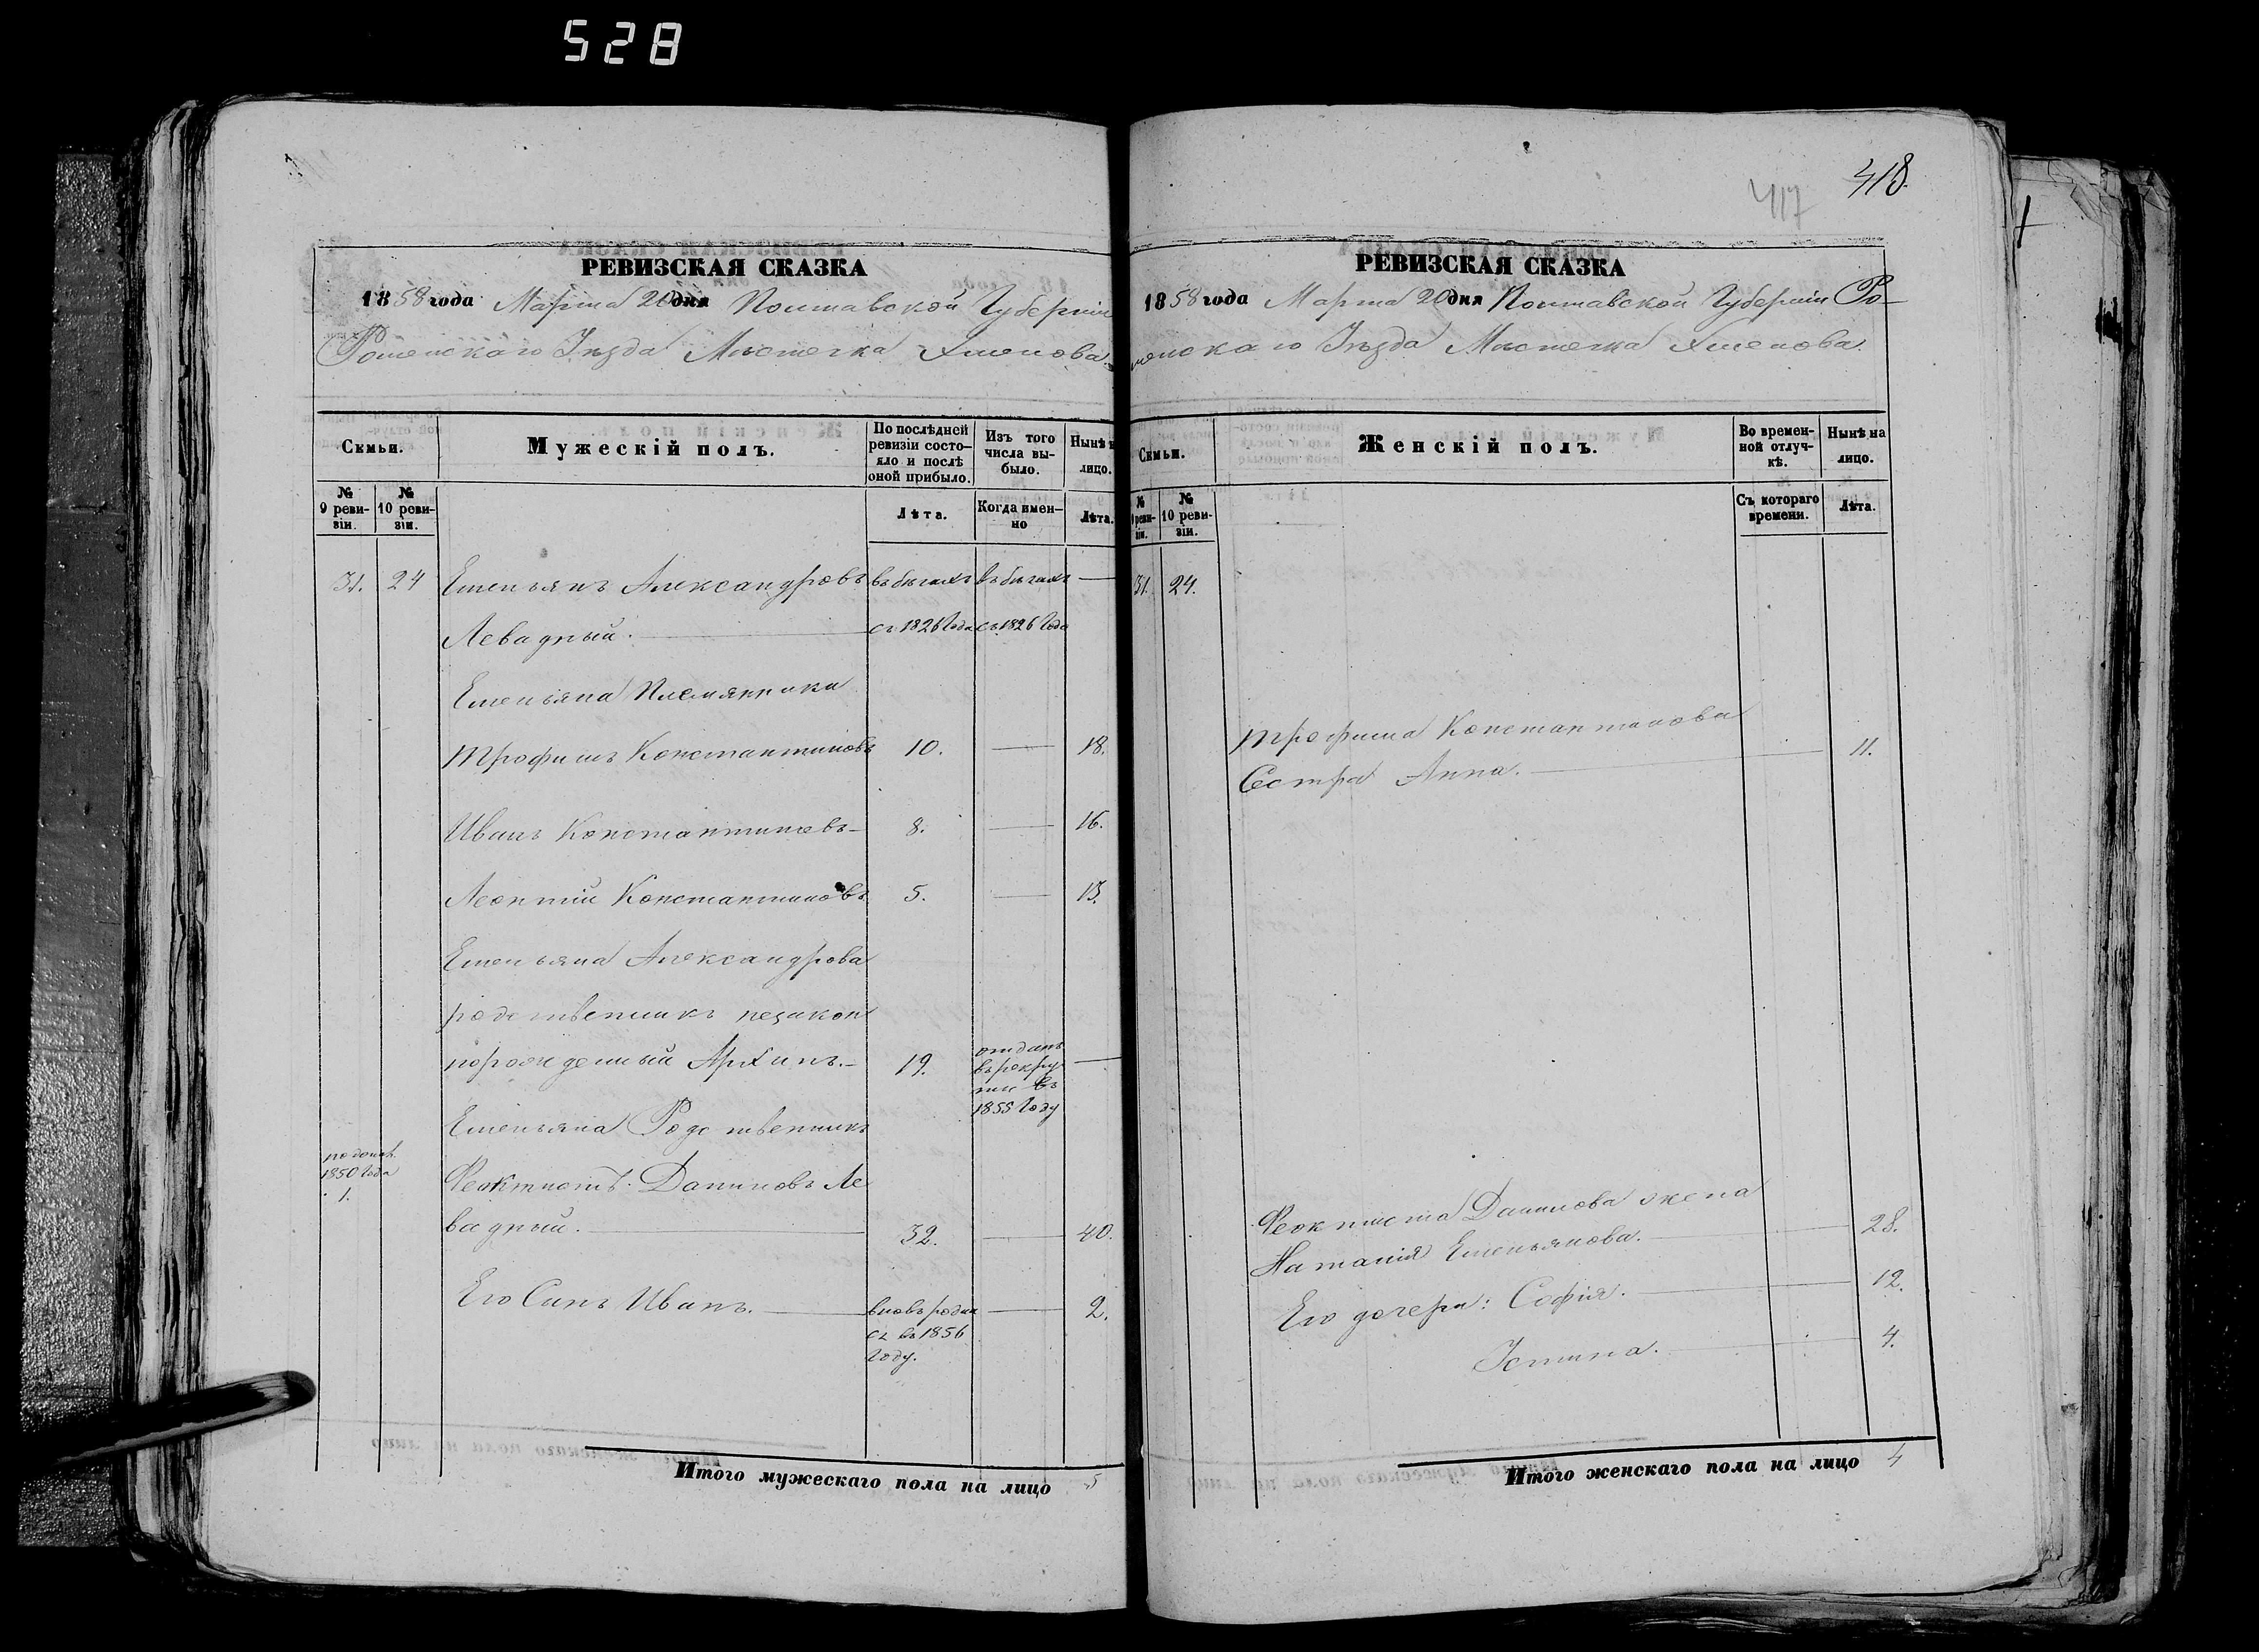 528
418.
417
РЕВИЗСКАЯ СКАЗКА
1858 года Марта 20 дня Полтавской Губерніи
Роменскаго Уѣзда Мѣстечка Хмелова.
Семьи.
Мужескій полъ.
По послѣдней ревизіи состояло и послѣ оной прибыло.
Изъ того числа выбыло.
Нынѣ н
лицо.
№ 9 ревизіи.
№ 10 ревизіи.
Лѣта.
Когда именно
Лѣта.
31. 24 Емельянъ Александровъ въ бѣгахъ въ бѣгахъ —
Левадный. съ 1826 Года съ 1826 Года
Емельяна Племянники
Трофимъ Константиновъ 10. — 18.
Иванъ Константиновъ 8. — 16.
Леонтій Константиновъ 5. — 13.
Емельяна Александрова
родственникъ незакон
норожденный Архипъ. 19. отданъ въ рекруты въ 1855 Году —
Емельяна Родственникъ
1850 Года
1.
Феоктистъ Даниловъ Ле
вадный. 32. — 40.
Его Сынъ Иванъ. вновь родился въ 1856 Году. — 2.
Итого мужескаго пола на лицо 5
РЕВИЗСКАЯ СКАЗКА
1858 года Марта 20 дня Полтавской Губерніи Ро-
менскаго Уѣзда Мѣстечка Хмелова.
Семьи.
Женскій полъ.
Во временной отлучкѣ.
Нынѣ на лицо.
№ 9 ревизіи.
№ 10 ревизіи.
Съ котораго времени.
Лѣта.
31. 24.
Трофима Константинова
Сестра Анна. — 11.
Феоктиста Данилова жена
Наталія Емельянова. — 28.
Его дочери: Софія. — 12.
Устина. — 4.
Итого женскаго пола на лицо 4